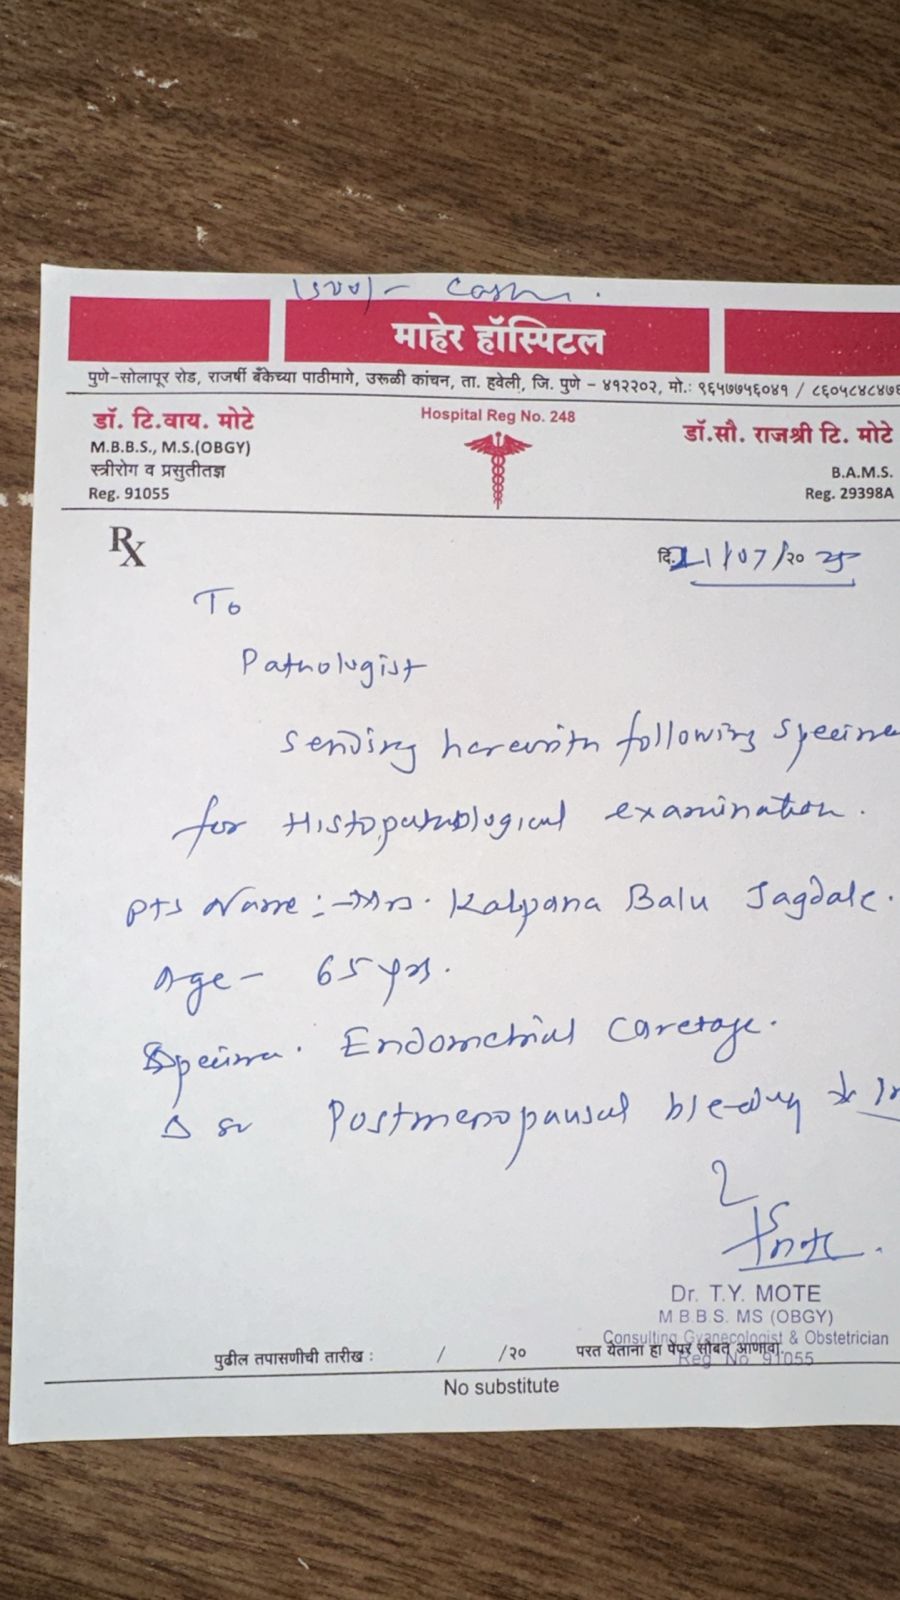 1500/- Cash.
माहेर हॉस्पिटल
पुणे-सोलापूर रोड, राजर्षी बँकेच्या पाठीमागे, उरूळी कांचन, ता. हवेली, जि. पुणे - ४१२२०२, मो.: ९६५७७५६०४१ / ८६०५८४८४७६
डॉ. टि.वाय. मोटे
M.B.B.S., M.S.(OBGY)
स्त्रीरोग व प्रसुतीतज्ञ
Reg. 91055
Hospital Reg No. 248
डॉ.सौ. राजश्री टि. मोटे
B.A.M.S.
Reg. 29398A
Rx
दि. 21/07/२० 25
To
Pathologist
Sending herewith following Specime
for Histopathological examination.
Pts Name :- Mrs. Kalpana Balu Jagdale.
Age - 65 yrs.
Specimen. Endometrial Caretage.
Postmenopausal bleeding
Dr. T.Y. MOTE
M.B.B.S. MS (OBGY)
Consulting Gyanecologist & Obstetrician
Reg. No. 91055
पुढील तपासणीची तारीख : / /२० परत येताना हा पेपर सोबत आणावा.
No substitute